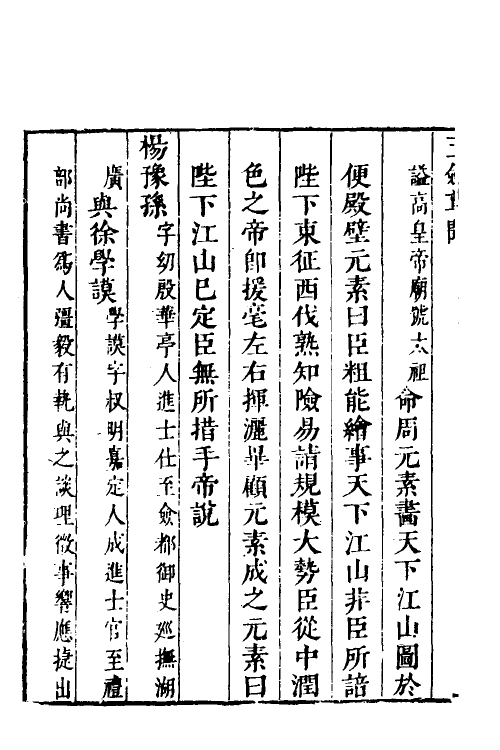 謚高皇帝廟號太祖命周元素畵天下江山圖於
便殿壁元素曰臣粗能繪事天下江山非臣所諳
陛下東征西伐熟知險易請規模大勢臣從中潤
色之帝卽援毫左右揮灑畢顧元素成之元素曰
陛下江山已定臣無所措手帝說
楊豫孫字幼殷華亭人進士仕至僉都御史廵撫湖
廣與徐學謨學謨字叔明嘉定人成進士官至禮
部尚書爲人彊毅有執與之談理徵事響應捷出